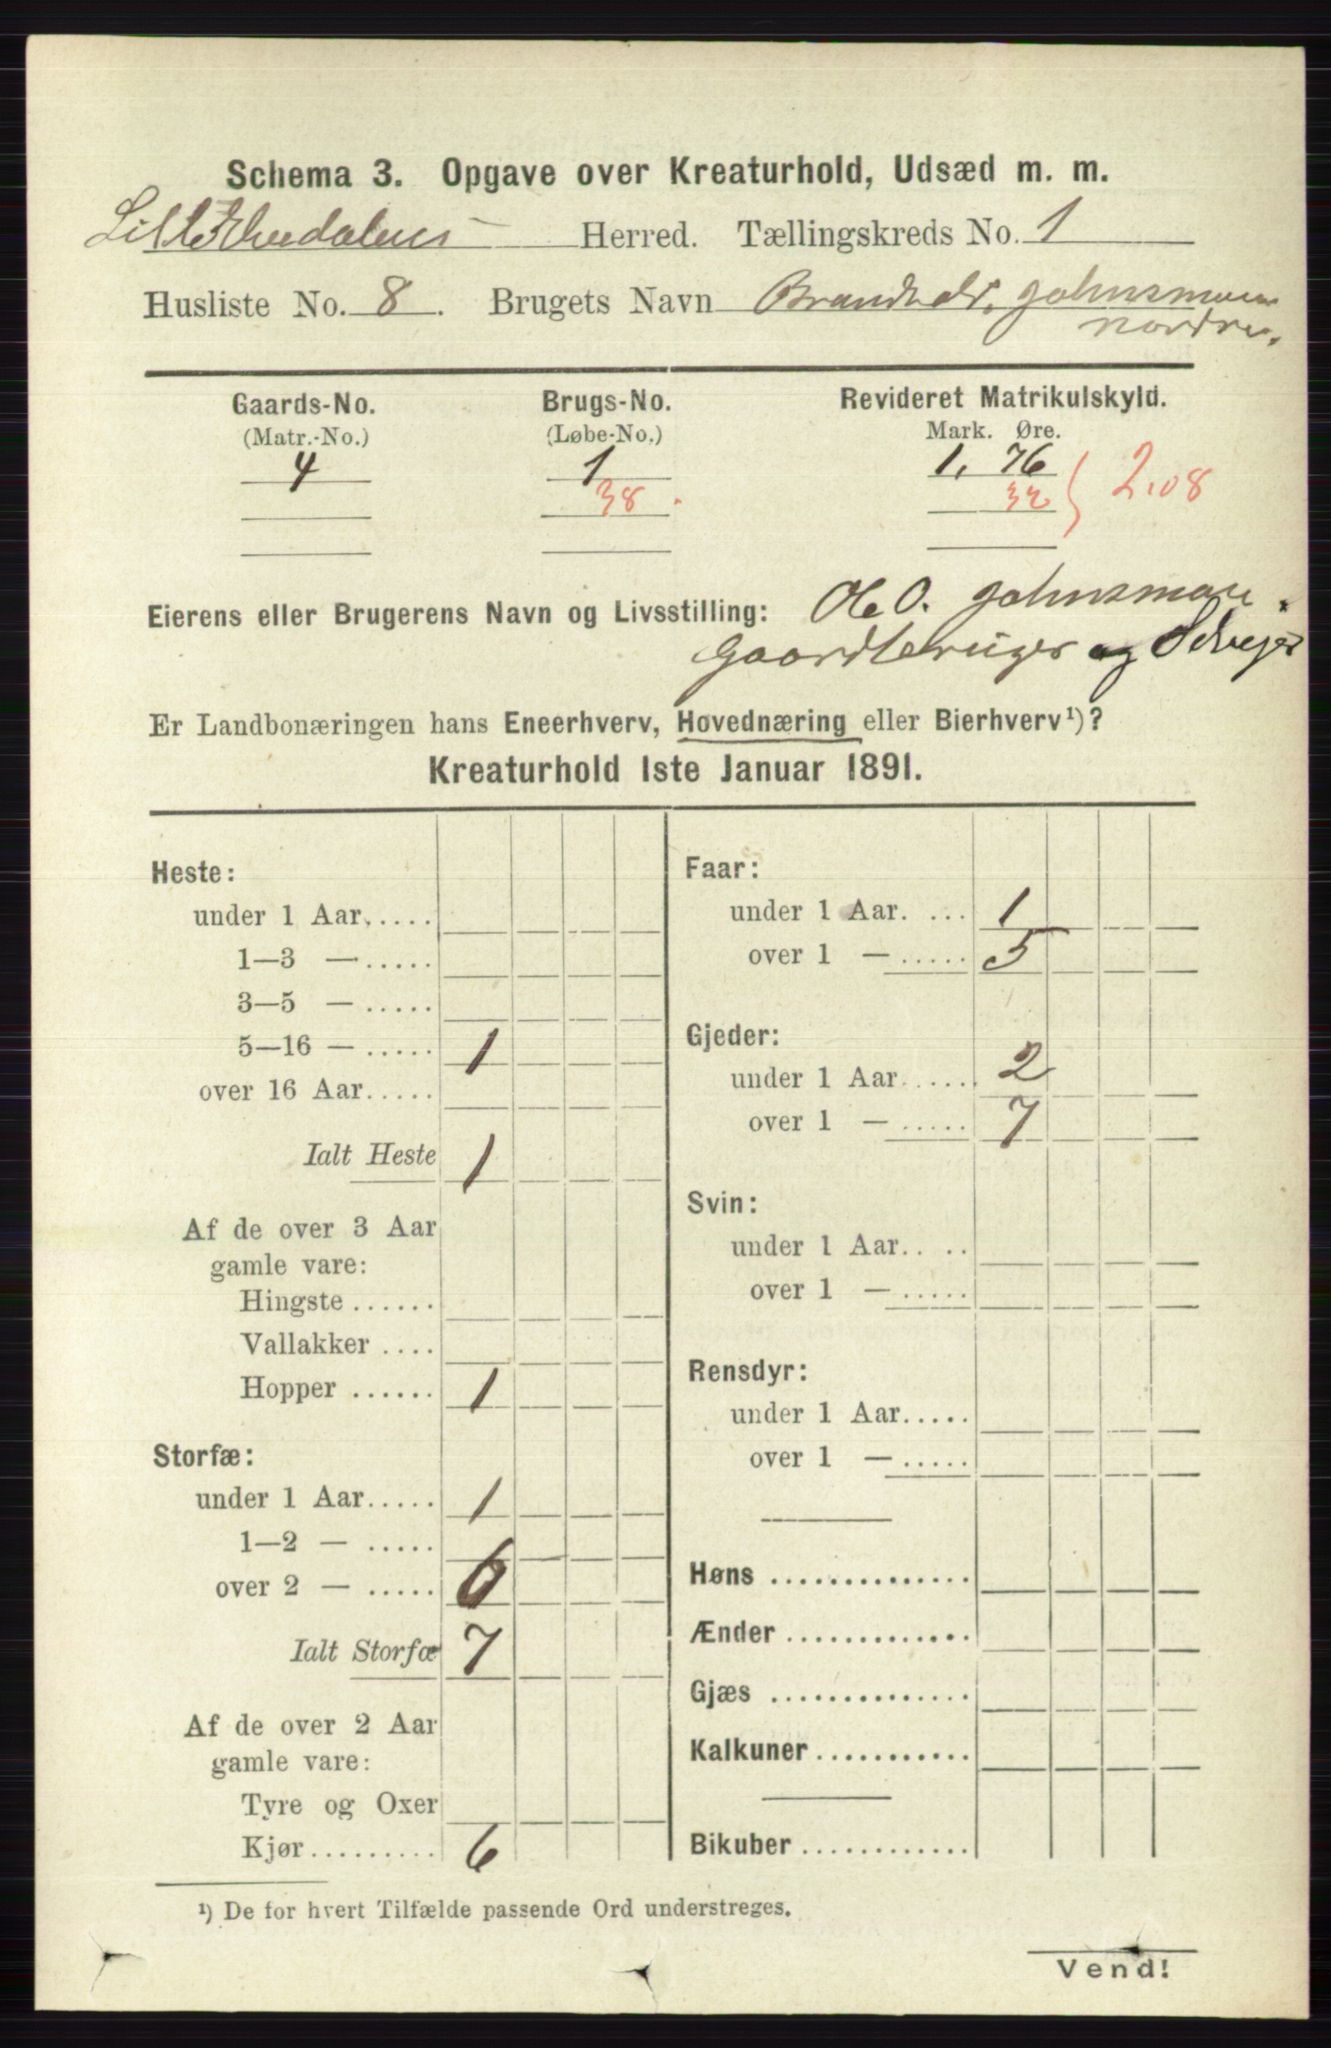 Schema 3. Opgave over Kreaturhold, Udsæd m. m.
Lille Elvedalens Herred. Tællingskreds No. 1
Husliste No. 8. Brugets Navn Johnsmoen
nordre.
Gaards-No. Brugs-No. Revideret Matrikulskyld.
(Matr.-No.) (Løbe-No.) Mark. Øre.
4 1 1. 76
38. 32 } 2.08
Eierens eller Brugerens Navn og Livsstilling: Ole O. Johnsmoen.
Gaardbruger og Selveier
Er Landbonæringen hans Eneerhverv, Hovednæring eller Bierhverv¹)?
Kreaturhold 1ste Januar 1891.
Heste:
under 1 Aar.....
1—3 —.....
3—5 —.....
5—16 —..... 1
over 16 Aar.....
Ialt Heste 1
Af de over 3 Aar
gamle vare:
Hingste......
Vallakker....
Hopper...... 1
Storfæ:
under 1 Aar..... 1
1—2 — .....
over 2 — ..... 6
Ialt Storfæ 7
Af de over 2 Aar
gamle vare:
Tyre og Oxer
Kjør......... 6
Faar:
under 1 Aar. ... 1
over 1 —..... 5
Gjeder:
under 1 Aar...... 2
over 1 —..... 7
Svin:
under 1 Aar.. ..
over 1 —.....
Rensdyr:
under 1 Aar.....
over 1 —.....
Høns..............
Ænder.............
Gjæs..............
Kalkuner...........
Bikuber.............
¹) De for hvert Tilfælde passende Ord understreges.
Vend!